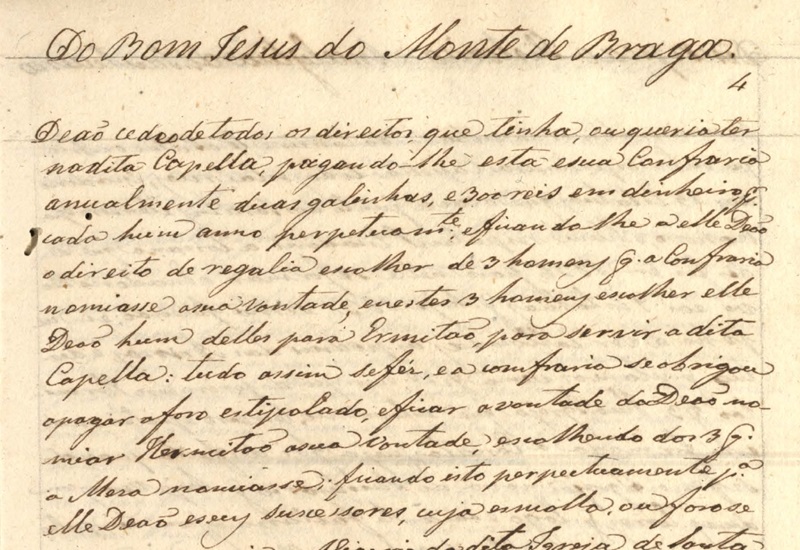 Do Bom Jesus do Monte de Braga.
4
Deaõ cedeo de todos os direitos, que tinha, ou queria ter
na dita Capella, pagando-lhe esta e sua Confraria
anualmente duas galinhas, e 300 reis em dinheiro q.
cada hum anno perpetuam.te; e ficando lhe a elle Deaõ
o direito de regalia escolher de 3 homens q. a Confraria
nomiasse a sua vontade, e nestes 3 homens escolher elle
Deaõ hum delles para Ermitaõ, para servir a dita
Capella: tudo assim se fez, e a comfraria se obrigou
apagar o foro estipolado, e ficar a vontade do Deaõ no-
miar Hermitaõ a sua vontade, escolhendo dos 3 q.
a Meza nomiasse; ficando isto perpectuamente p.a
elle Deaõ e seus sucessores, cuja esmolla, ou foro se
Vigario da dita Igreja de Santa